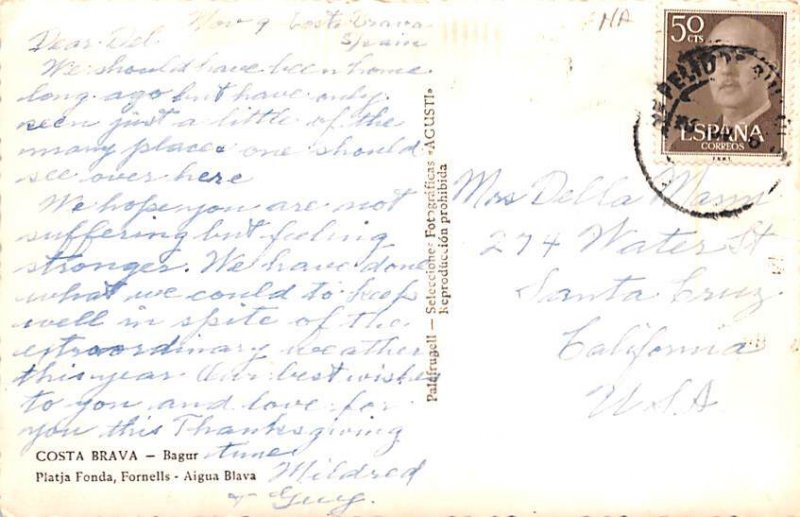 Nov 9 Costa Brava
Spain
Dear Del
We should have been home
long ago but have only
seen just a little of the
many places one should
see over here
We hope you are not
suffering but feeling
stronger. We have done
what we could to keep
well in spite of the
extraordinary weather
this year. Our best wishes
to you and love for
you this Thanksgiving
time
Mildred
+
COSTA BRAVA — Bagur
Platja Fonda, Fornells - Aigua Blava
Palafrugell — Selecciones Fotográficas «AGUSTI»
Reproducción prohibida
NA
50
CTS
ESPAÑA
CORREOS
F.N.M.T.
Mrs Della
274 Water St
Santa Cruz
California
USA